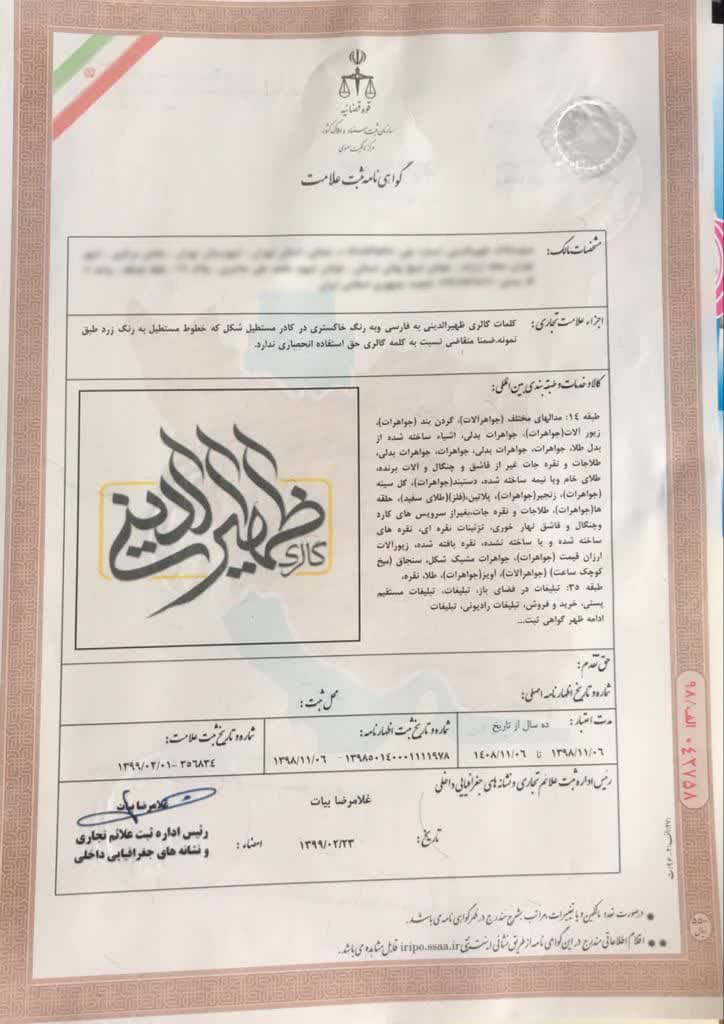 قوه قضائیه
سازمان ثبت اسناد و املاک کشور
مرکز مالکیت معنوی
گواهی نامه ثبت علامت
مشخصات مالک:
اجزاء علامت تجاری: کلمات گالری ظهیرالدینی به فارسی وبه رنگ خاکستری در کادر مستطیل شکل که خطوط مستطیل به رنگ زرد طبق
نمونه.ضمنا متقاضی نسبت به کلمه گالری حق استفاده انحصاری ندارد.
کالا و خدمات و طبقه بندی بین المللی:
طبقه ۱۴: مدالهای مختلف (جواهرآلات)، گردن بند (جواهرات)،
زیور آلات(جواهرات)، جواهرات بدلی، اشیاء ساخته شده از
بدل طلا، جواهرات، جواهرات بدلی، جواهرات، جواهرات بدلی،
طلاجات و نقره جات غیر از قاشق و چنگال و آلات برنده،
طلای خام ویا نیمه ساخته شده، دستبند(جواهرات)، گل سینه
(جواهرات)، زنجیر(جواهرات)، پلاتین،(فلز)(طلای سفید)، حلقه
ها(جواهرات)، طلاجات و نقره جات،بغیراز سرویس های کارد
وچنگال و قاشق نهار خوری، تزئینات نقره ای، نقره های
ساخته شده و یا ساخته نشده، نقره بافته شده، زیورآلات
ارزان قیمت (جواهرات)، جواهرات مشبک شکل، سنجاق (میخ
کوچک ساعت) (جواهرآلات)، آویز(جواهرات)، طلا، نقره،
طبقه ۳۵: تبلیغات در فضای باز، تبلیغات، تبلیغات مستقیم
پستی، خرید و فروش، تبلیغات رادیونی، تبلیغات
ادامه ظهر گواهی ثبت...
گالری ظهیرالدینی
حق تقدم:
شماره و تاریخ اظهارنامه اصلی:
محل ثبت:
مدت اعتبار: ده سال از تاریخ
۱۳۹۸/۱۱/۰۶ تا ۱۴۰۸/۱۱/۰۶
شماره و تاریخ ثبت اظهارنامه:
۱۳۹۸۵۰۱۴۰۰۰۱۱۱۱۹۷۸ - ۱۳۹۸/۱۱/۰۶
شماره و تاریخ ثبت علامت:
۳۵۶۸۳۴ - ۱۳۹۹/۰۲/۰۱
رئیس اداره ثبت علائم تجاری و نشانه های جغرافیایی داخلی
غلامرضا بیات
تاریخ: ۱۳۹۹/۰۲/۲۳
امضاء:
غلامرضا بیات
رئیس اداره ثبت علائم تجاری
و نشانه های جغرافیایی داخلی
درصورت تعدد مالکین و یا تغییرات، مراتب بشرح مندرج در ظهر گواهی نامه می باشد.
اقلام اطلاعاتی مندرج در این گواهی نامه از طریق نشانی اینترنتی iripo.ssaa.ir قابل مشاهده می باشد.